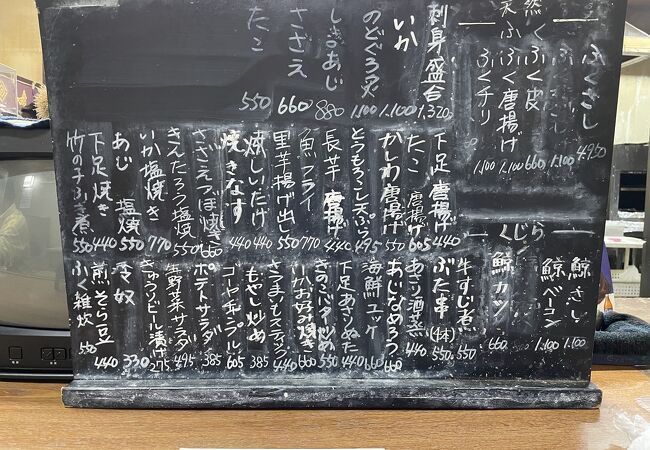 ふくさし 4.950
1.100
ふく皮 660
ふく唐揚げ 1.100
ふくチリ 1.100
刺身盛合 1.320
いか 1.100
のどぐろ炙 1.100
しまあじ 880
さざえ 660
たこ 550
くじら
鯨さし 1.100
鯨ベーコン 1.100
鯨カツ 660
下足唐揚げ 440
たこ唐揚げ 605
かしわ唐揚げ 550
とうもろこし天ぷら 495
長芋唐揚げ 440
魚フライ 770
里芋揚げ出し 550
焼しいたけ 440
焼きなす 440
さざえつぼ焼き 660
きんたろう塩焼 550
いか塩焼き 770
あじ塩焼 550
下足焼き 440
竹の子ふき煮 550
牛すじ煮 550
ぶた串(4本) 550
あさり酒蒸し 440
あじなめろう 660
海鮮ユッケ 660
下足あさりぬた 440
きのこバター炒め 550
いかお好み焼き 660
さつまいもスティック 440
もやし炒め 385
ゴーヤチャンプル 605
ポテトサラダ 385
生野菜サラダ 495
きゅうりビール漬け 275
冷奴 330
煎そら豆 440
ふく雑炊 550